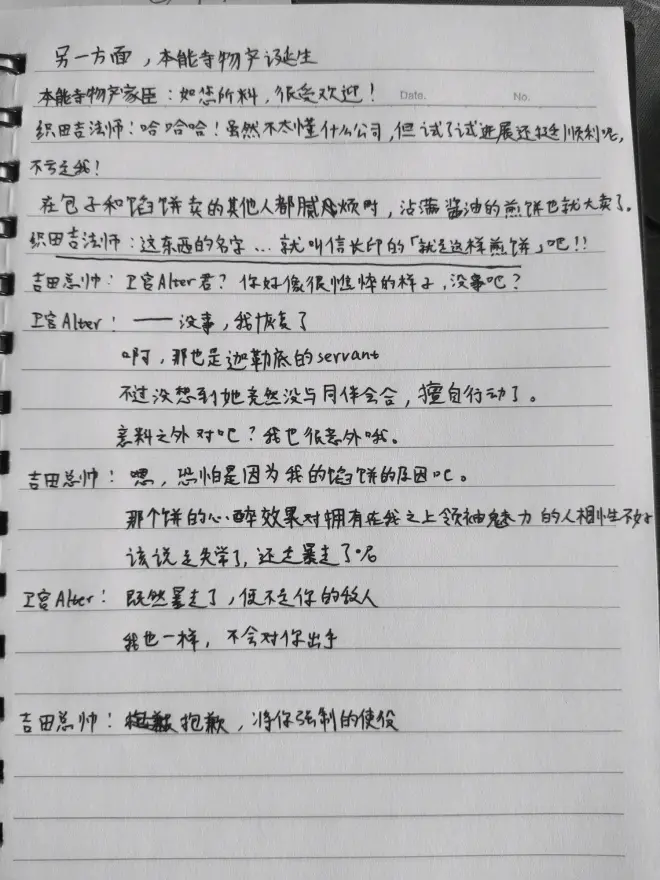 另一方面，本能寺物产诞生
本能寺物产家臣：如您所料，很受欢迎！
Date. No.
织田吉法师：哈哈哈！虽然不太懂什么公司，但试了试进展还挺顺利呢，
不亏是我！
在包子和馅饼卖的其他人都腻烦时，沾满酱油的煎饼也就大卖了。
织田吉法师：这东西的名字…就叫信长印的「就是这样煎饼」吧！！
吉田总帅：卫宫Alter君？你好像很憔悴的样子，没事吧？
卫宫Alter：——没事，我恢复了
啊，那也是迦勒底的servant
不过没想到她竟然没与同伴会合，擅自行动了。
意料之外对吧？我也很意外哦。
吉田总帅：嗯，恐怕是因为我的馅饼的原因吧。
那个饼的心醉效果对拥有在我之上领袖魅力的人相性不好
该说是失常了，还是暴走了呢
卫宫Alter：既然暴走了，便不是你的敌人
我也一样，不会对你出手
吉田总帅：抱歉，将你强制的使役